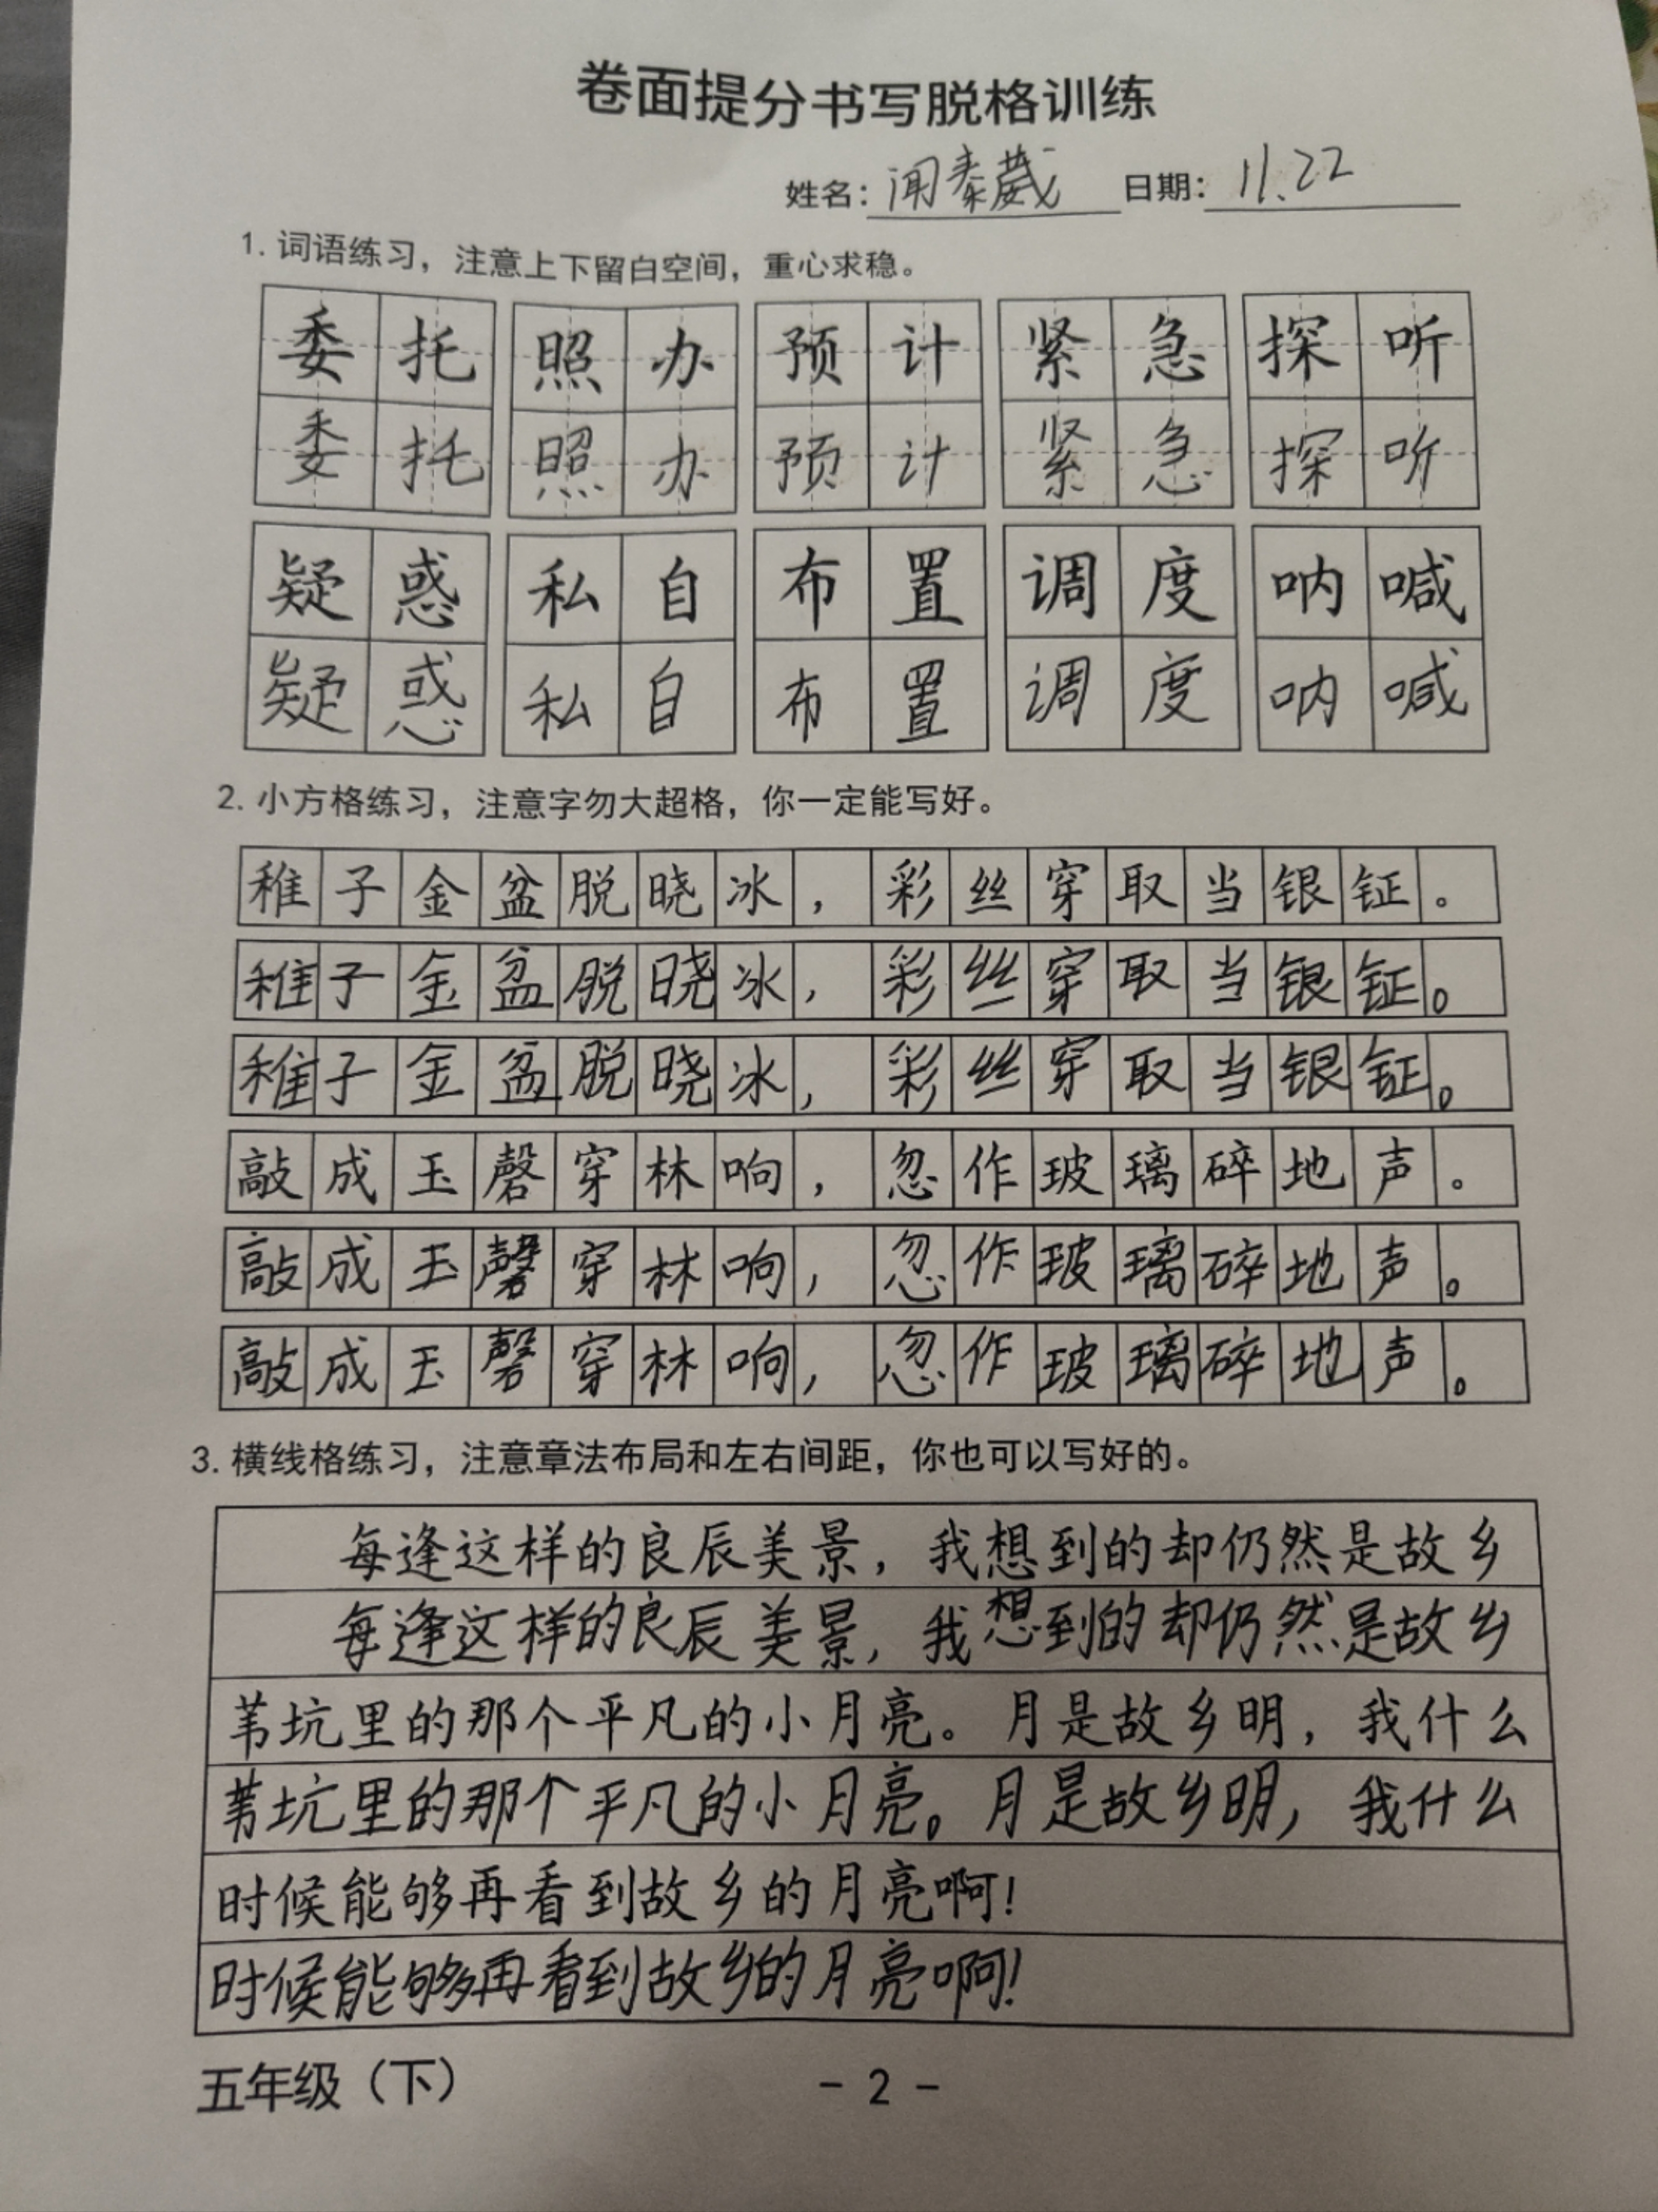 卷面提分书写脱格训练
姓名：闻泰葳 日期：11.22
1. 词语练习，注意上下留白空间，重心求稳。
委托 照办 预计 紧急 探听
委托 照办 预计 紧急 探听
疑惑 私自 布置 调度 呐喊
疑惑 私自 布置 调度 呐喊
2. 小方格练习，注意字勿大超格，你一定能写好。
稚子金盆脱晓冰，彩丝穿取当银钲。
稚子金盆脱晓冰，彩丝穿取当银钲。
稚子金盆脱晓冰，彩丝穿取当银钲。
敲成玉磬穿林响，忽作玻璃碎地声。
敲成玉磬穿林响，忽作玻璃碎地声。
敲成玉磬穿林响，忽作玻璃碎地声。
3. 横线格练习，注意章法布局和左右间距，你也可以写好的。
每逢这样的良辰美景，我想到的却仍然是故乡
每逢这样的良辰美景，我想到的却仍然是故乡
苇坑里的那个平凡的小月亮。月是故乡明，我什么
苇坑里的那个平凡的小月亮。月是故乡明，我什么
时候能够再看到故乡的月亮啊！
时候能够再看到故乡的月亮啊！
五年级（下） - 2 -